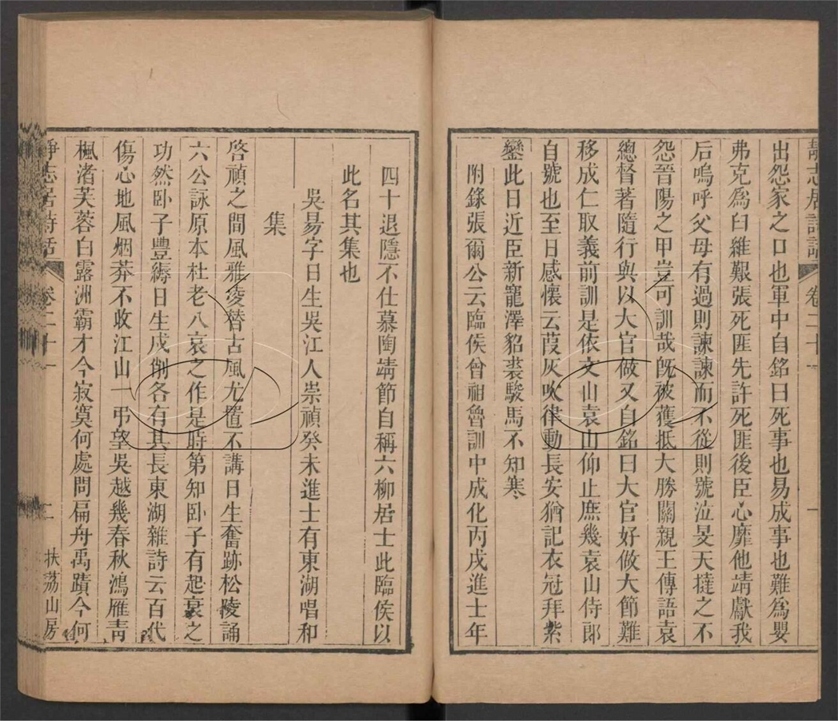 靜志居詩話 卷二十一 一
出怨家之口也軍中自銘曰死事也易成事也難為嬰
弗克為臼維艱張死匪先許死匪後臣心靡他靖獻我
后嗚呼父母有過則諫諫而不從則號泣旻天撻之不
怨晉陽之甲豈可訓哉旣被獲抵大勝關親王傳語袁
總督著隨行與以大官做又自銘曰大官好做大節難
移成仁取義前訓是依文山袁山仰止庶幾袁山侍郎
自號也至日感懷云葭灰吹律動長安猶記衣冠拜紫
鑾此日近臣新寵澤貂裘駿馬不知寒
附錄張爾公云臨侯曾祖魯訓中成化丙戌進士年
四十退隱不仕慕陶靖節自稱六柳居士此臨侯以
此名其集也
吳昜字日生吳江人崇禎癸未進士有東湖唱和
集
啓禎之間風雅凌替古風尤置不講日生奮跡松陵誦
六公詠原本杜老八哀之作是時第知卧子有起衰之
功然卧子豐縟日生戍削各有其長東湖雜詩云百代
傷心地風烟莽不收江山一弔望吳越幾春秋鴻雁靑
楓渚芙蓉白露洲霸才今寂寞何處問扁舟禹蹟今何
靜志居詩話 卷二十一 二 扶荔山房